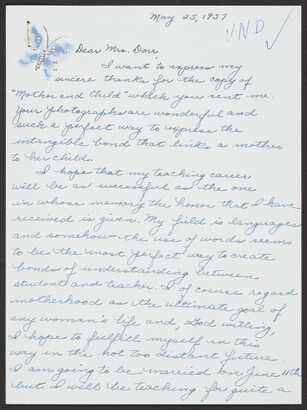 May 25, 1957
VND ✓
Dear Mrs. Dorr,
I want to express my
sincere thanks for the copy of
"Mother and Child" which you sent me.
Your photographs are wonderful and
such a perfect way to express the
intangible bond that links a mother
to her child.
I hope that my teaching career
will be as successful as the one
in whose memory the honor that I have
received is given. My field is languages
and somehow the use of words seems
to be the most perfect way to create
bonds of understanding between
student and teacher. I of course regard
motherhood as the ultimate goal of
any woman's life and, God willing,
I hope to fulfill myself in this
way in the not too distant future.
I am going to be married on June 11th
but I will be teaching for quite a